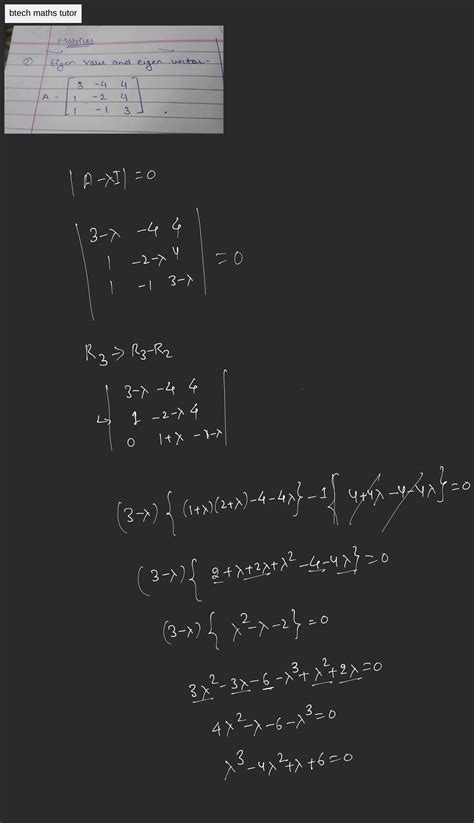 btech maths tutor
Matrices
① Eigen value and eigen vector-
A = [3 -4 4
1 -2 4
1 -1 3] .
|A-λI| = 0
|3-λ -4 4
1 -2-λ 4
1 -1 3-λ| = 0
R₃ → R₃-R₂
↳ |3-λ -4 4
1 -2-λ 4
0 1+λ -1-λ|
(3-λ) {(1+λ)(2+λ)-4-4λ} - 1{4+4λ-4-4λ} = 0
(3-λ) {2+λ+2λ+λ²-4-4λ} = 0
(3-λ) {λ²-λ-2} = 0
3λ²-3λ-6-λ³+λ²+2λ = 0
4λ²-λ-6-λ³ = 0
λ³-4λ²+λ+6 = 0